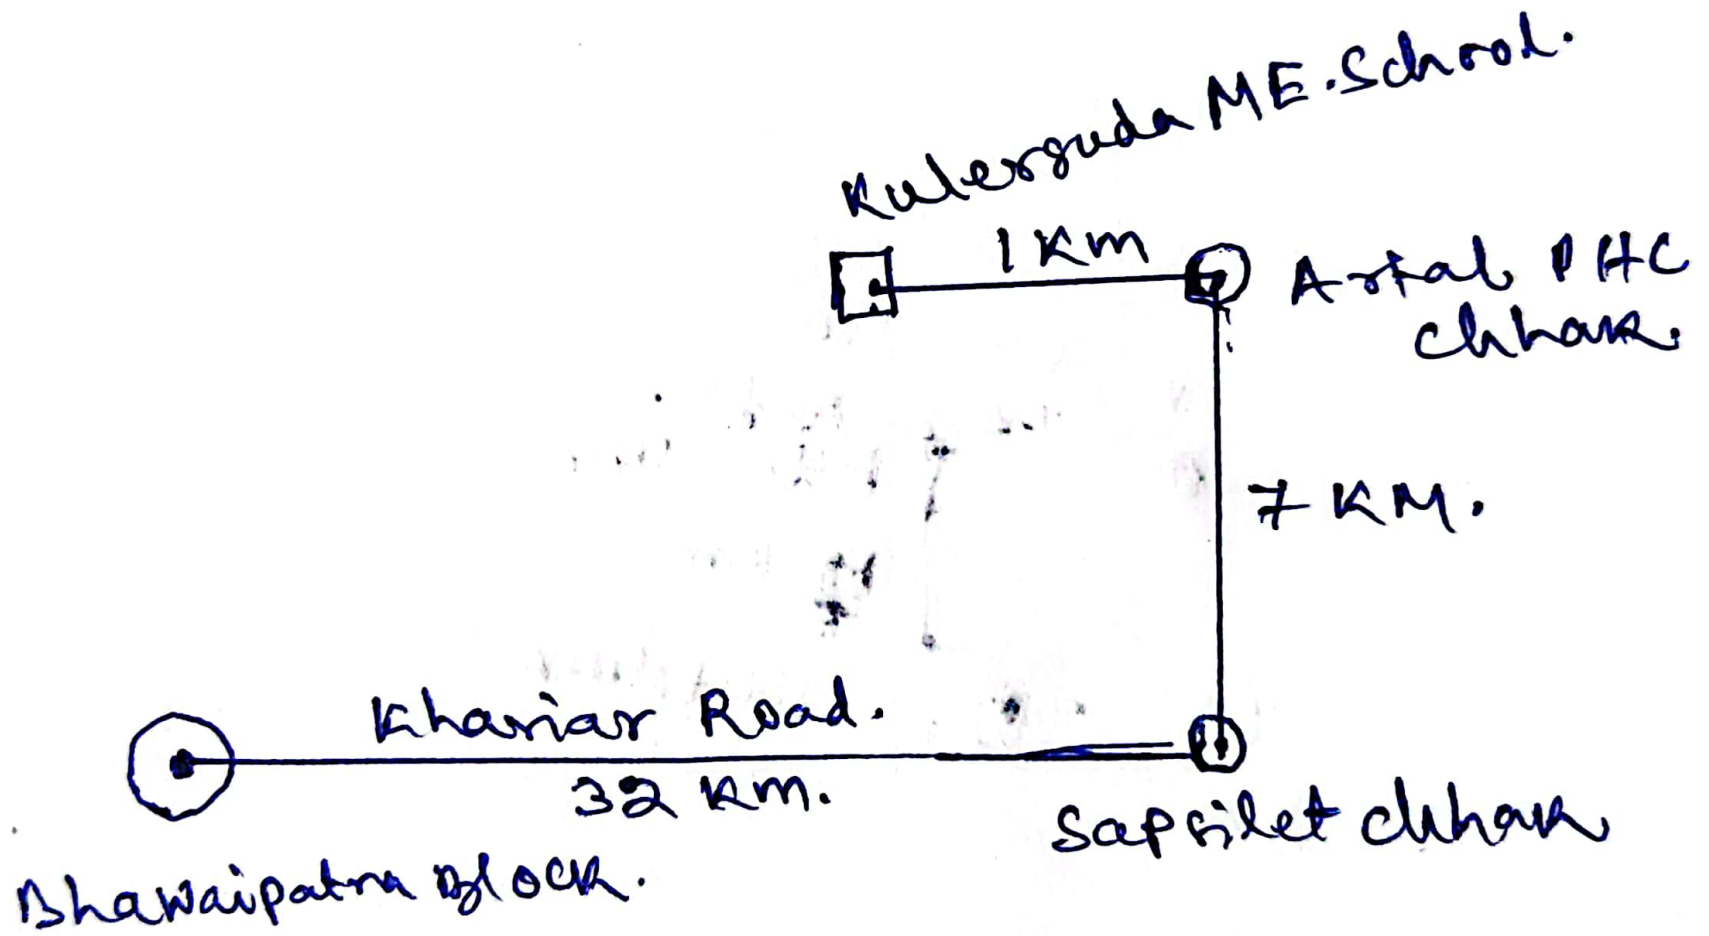 Kulerguda ME. School.
1 Km
Artal PHC
Chhak.
7 KM.
Khariar Road.
32 Km.
Sapsilet Chhak
Bhawaipatna Block.